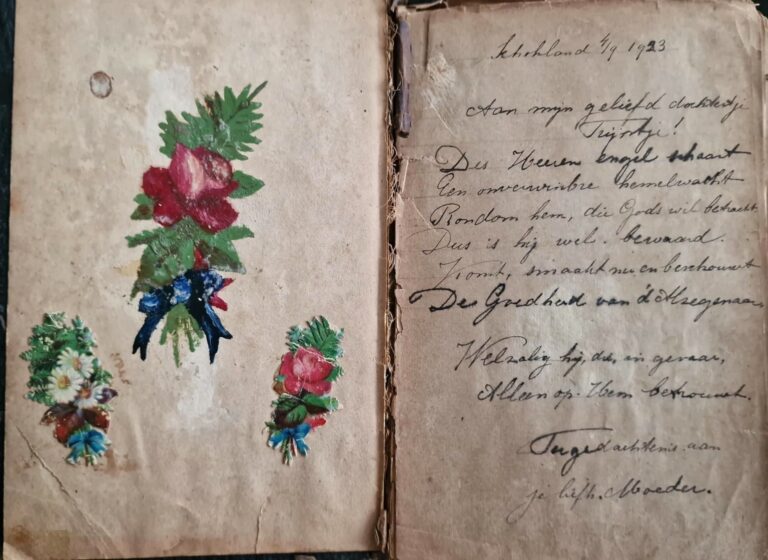 Schokland 4/9 1923
Aan mijn geliefd dochtertje
Trijntje!
Des Heeren engel schaart
Een onverwinbre hemelwacht
Rondom hem, die Gods wil betracht.
Dus is hij wel. bewaard.
Komt, smaakt nu en beschouwt
De Goedheid van d'Alzegenaar,
Welzalig hij, die, in gevaar,
Alleen op Hem betrouwt.
Ter gedachtenis aan
je liefh. Moeder.